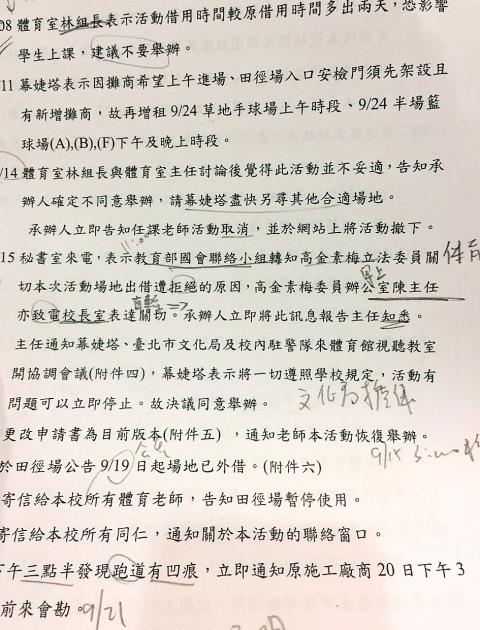 08 體育室林組長表示活動借用時間較原借用時間多出兩天，恐影響
學生上課，建議不要舉辦。
/11 幕婕塔表示因攤商希望上午進場、田徑場入口安檢門須先架設且
有新增攤商，故再增租 9/24 草地手球場上午時段、9/24 半場籃
球場(A),(B),(F)下午及晚上時段。
/14 體育室林組長與體育室主任討論後覺得此活動並不妥適，告知承
辦人確定不同意舉辦，請幕婕塔盡快另尋其他合適場地。
承辦人立即告知任課老師活動取消，並於網站上將活動撤下。
11:00
15 秘書室來電，表示教育部國會聯絡小組轉知高金素梅立法委員關
體育
切本次活動場地出借遭拒絕的原因，高金素梅委員辦公室陳主任
早上
亦致電校長室表達關切。承辦人立即將此訊息報告主任知悉。
主任通知幕婕塔、臺北市文化局及校內駐警隊來體育館視聽教室
開協調會議(附件四)，幕婕塔表示將一切遵照學校規定，活動有
問題可以立即停止。故決議同意舉辦。
更改申請書為目前版本(附件五) ，通知老師本活動恢復舉辦。
9/15
於田徑場公告 9/19 日起場地已外借。(附件六)
寄信給本校所有體育老師，告知田徑場暫停使用。
寄信給本校所有同仁，通知關於本活動的聯絡窗口。
下午三點半發現跑道有凹痕，立即通知原施工廠商 20 日下午 3
前來會勘。9/21